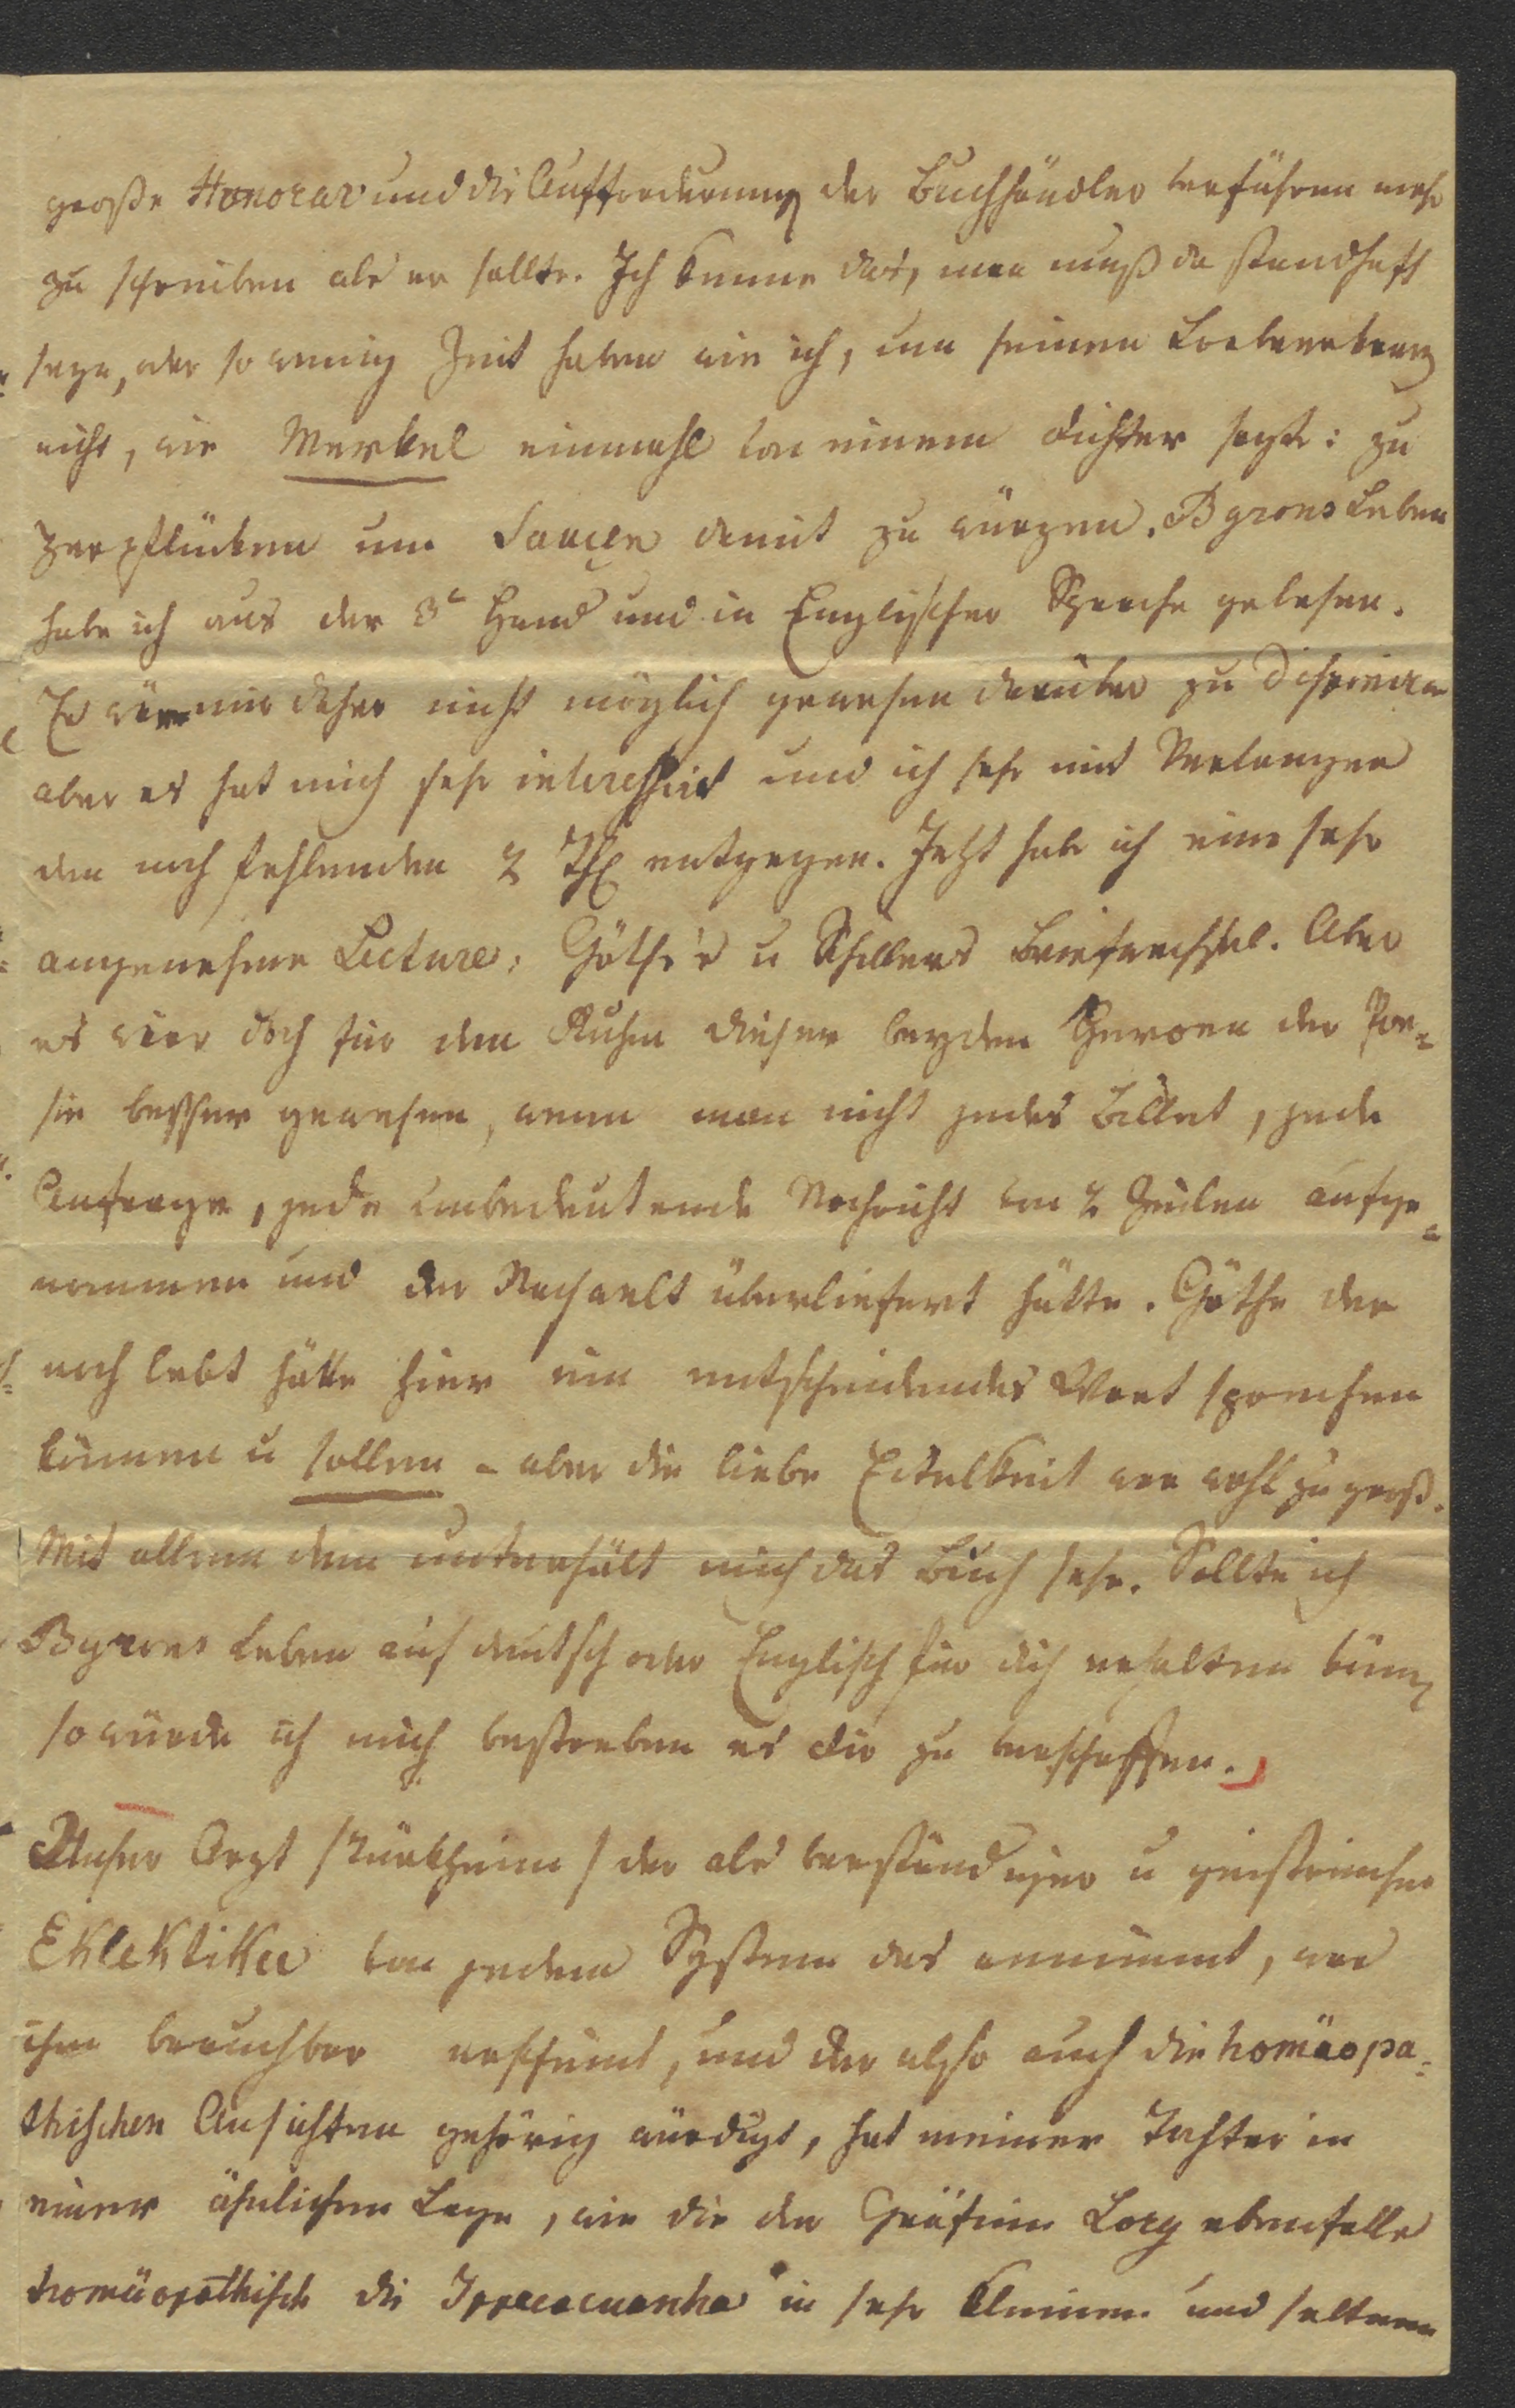 große Honorar und die Aufforderung der Buchhändler verführen mehr
zu schreiben als er sollte. Ich kenne das, man muß da standhaft
seyn, oder so wenig Zeit haben wie ich, um seinen Lorbeerkranz
nicht, wie Merkel einmahl von einem Dichter sagte: zu
zerpflücken um Saucen damit zu würzen. Byrons Leben
habe ich aus der 3t Hand und in Englischer Sprache gelesen.
Es wäre mir daher nicht möglich gewesen darüber zu
aber es hat mich sehr interessirt und ich sehe mit Verlangen
den noch fehlenden 2 Th entgegen. Jetzt habe ich eine sehr
angenehme Lecture, Göthe's u Schillers Briefwechsel. Aber
es wär doch für den Ruhm dieser beyden Heroen der Poe-
sie besser gewesen, wenn man nicht jedes Billet, jede
Anfrage, jede unbedeutende Nachricht von 2 Zeilen aufge-
nommen und der Nachwelt überliefert hätte. Göthe der
noch lebt hätte hier ein entscheidendes Wort sprechen
können u sollen - aber die liebe Eitelkeit war wohl zu groß.
Mit allem dem unterhält mich das Buch sehr. Sollte ich
Byrons Leben auf deutsch oder Englisch für dich erhalten können
so würde ich mich bestreben es dir zu verschaffen.
Unser Arzt / der als verständiger u geistreicher
Eklektiker von jedem System das annimmt, was
ihm brauchbar erscheint, und der also auch die homäopa-
thischen Ansichten gehörig würdigt, hat meiner Tochter in
einer ähnlichen Lage, wie die der Gräfinn ebenfalls
homäopathisch die Ippecacuanha in sehr kleinen und seltenen